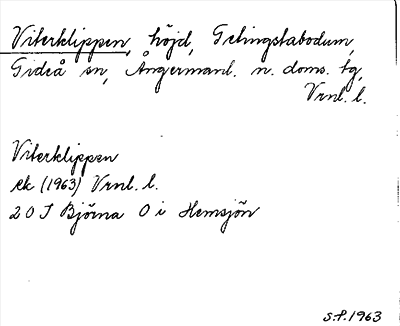 Viterklippen, höjd, Telningstabodum,
Gideå sn, Ångermanl. n. doms. tg,
Vrnl. l.
Viterklippen
ek (1963) Vrnl. l.
20 J Björna O i Hemsjön
S.P. 1963